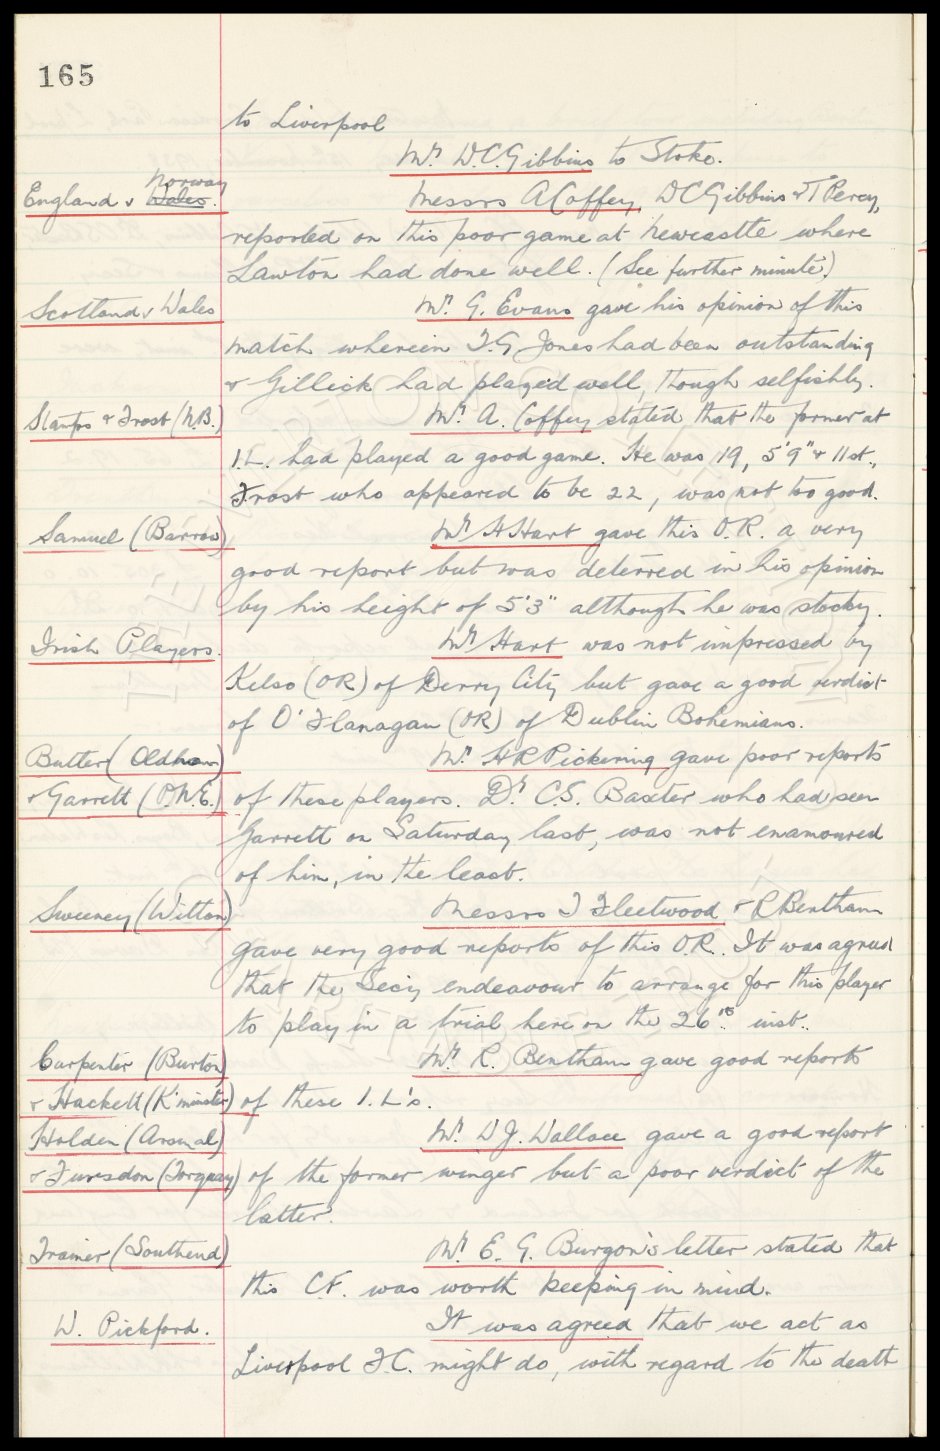 165
to Liverpool
Mr. D.C. Gibbins to Stoke.
England v Wales. Norway
Messrs A Coffey, D C Gibbins & T Percy,
reported on this poor game at Newcastle where
Lawton had done well. (See further minute.)
Scotland v Wales
Mr. G. Evans gave his opinion of this
match wherein T.G. Jones had been outstanding
& Gillick had played well, though selfishly.
Stamps & Frost (N.B.)
Mr. A. Coffey stated that the former at
I.L. had played a good game. He was 19, 5'9" & 11st.,
Frost who appeared to be 22, was not too good.
Samuel (Barrow)
Mr H Hart gave this O.R. a very
good report but was deterred in his opinion
by his height of 5'3" although he was stocky.
Irish Players.
Mr Hart was not impressed by
Kelso (OR) of Derry City but gave a good verdict
of O'Flanagan (OR) of Dublin Bohemians.
Butler (Oldham)
Mr. H R Pickering gave poor reports
& Garrett (P.N.E.)
of these players. Dr. C.S. Baxter who had seen
Garrett on Saturday last, was not enamoured
of him, in the least.
Sweeney (Witton)
Messrs T Fleetwood & R Bentham
gave very good reports of this O.R. It was agreed
that the Secy endeavour to arrange for this player
to play in a trial here on the 26th inst..
Carpenter (Burton)
Mr. R. Bentham gave good reports
& Hackett (K'minster)
of these I.L's.
Holden (Arsenal)
Mr. D J. Wallace gave a good report
& Fursdon (Torquay)
of the former winger but a poor verdict of the
latter.
Trainer (Southend)
Mr. E. G. Burgon's letter stated that
this C.F. was worth keeping in mind.
W. Pickford.
It was agreed that we act as
Liverpool F.C. might do, with regard to the death